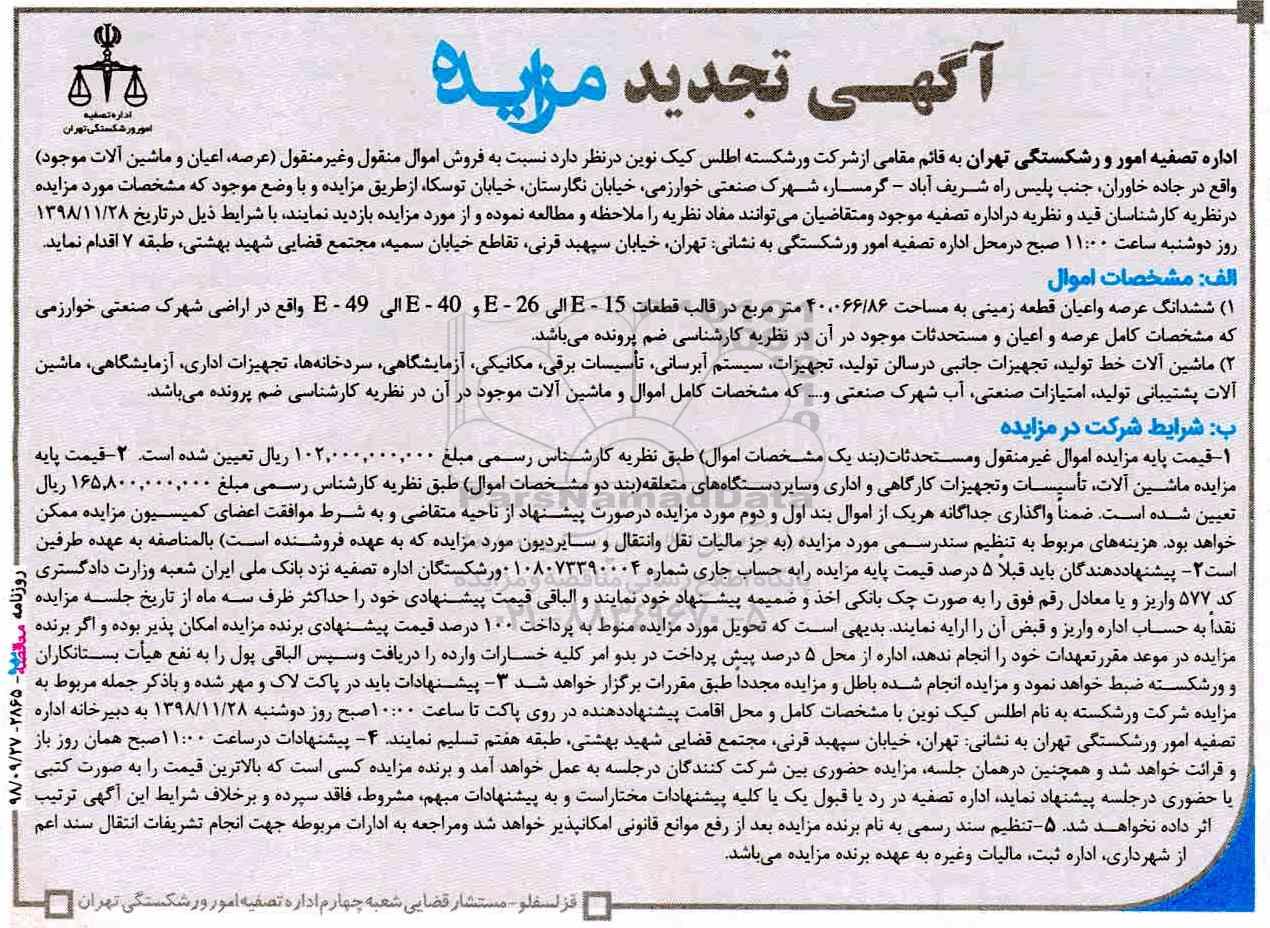 آگهی تجدید مزایده
اداره تصفیه
امور ورشکستگی تهران
اداره تصفیه امور و رشکستگی تهران به قائم مقامی ازشرکت ورشکسته اطلس کیک نوین درنظر دارد نسبت به فروش اموال منقول وغیرمنقول (عرصه، اعیان و ماشین آلات موجود)
واقع در جاده خاوران، جنب پلیس راه شریف آباد – گرمسار، شهرک صنعتی خوارزمی، خیابان نگارستان، خیابان توسکا، ازطریق مزایده و با وضع موجود که مشخصات مورد مزایده
درنظریه کارشناسان قید و نظریه دراداره تصفیه موجود ومتقاضیان می‌توانند مفاد نظریه را ملاحظه و مطالعه نموده و از مورد مزایده بازدید نمایند، با شرایط ذیل درتاریخ ۱۳۹۸/۱۱/۲۸
روز دوشنبه ساعت ۱۱:۰۰ صبح درمحل اداره تصفیه امور ورشکستگی به نشانی: تهران، خیابان سپهبد قرنی، تقاطع خیابان سمیه، مجتمع قضایی شهید بهشتی، طبقه ۷ اقدام نماید.
الف: مشخصات اموال
۱) ششدانگ عرصه واعیان قطعه زمینی به مساحت ۴۰،۰۶۶/۸۶ متر مربع در قالب قطعات E - 15 الی E - 26 و E - 40 الی E - 49 واقع در اراضی شهرک صنعتی خوارزمی
که مشخصات کامل عرصه و اعیان و مستحدثات موجود در آن در نظریه کارشناسی ضم پرونده می‌باشد.
۲) ماشین آلات خط تولید، تجهیزات جانبی درسالن تولید، تجهیزات، سیستم آبرسانی، تأسیسات برقی، مکانیکی، آزمایشگاهی، سردخانه‌ها، تجهیزات اداری، آزمایشگاهی، ماشین
آلات پشتیبانی تولید، امتیازات صنعتی، آب شهرک صنعتی و.... که مشخصات کامل اموال و ماشین آلات موجود در آن در نظریه کارشناسی ضم پرونده می‌باشد.
ب: شرایط شرکت در مزایده
۱-قیمت پایه مزایده اموال غیرمنقول ومستحدثات(بند یک مشخصات اموال) طبق نظریه کارشناس رسمی مبلغ ۱۰۲,۰۰۰,۰۰۰,۰۰۰ ریال تعیین شده است. ۲-قیمت پایه
مزایده ماشین آلات، تأسیسات وتجهیزات کارگاهی و اداری وسایردستگاه‌های متعلقه(بند دو مشخصات اموال) طبق نظریه کارشناس رسمی مبلغ ۱۶۵,۸۰۰,۰۰۰,۰۰۰ ریال
تعیین شده است. ضمناً واگذاری جداگانه هریک از اموال بند اول و دوم مورد مزایده درصورت پیشنهاد از ناحیه متقاضی و به شرط موافقت اعضای کمیسیون مزایده ممکن
خواهد بود. هزینه‌های مربوط به تنظیم سندرسمی مورد مزایده (به جز مالیات نقل وانتقال و سایردیون مورد مزایده که به عهده فروشنده است) بالمناصفه به عهده طرفین
است۲- پیشنهاددهندگان باید قبلاً ۵ درصد قیمت پایه مزایده رابه حساب جاری شماره ۰۱۰۸۰۷۳۳۹۰۰۰۴ورشکستگان اداره تصفیه نزد بانک ملی ایران شعبه وزارت دادگستری
کد ۵۷۷ واریز و یا معادل رقم فوق را به صورت چک بانکی اخذ و ضمیمه پیشنهاد خود نمایند و الباقی قیمت پیشنهادی خود را حداکثر ظرف سه ماه از تاریخ جلسه مزایده
نقداً به حساب اداره واریز و قبض آن را ارایه نمایند. بدیهی است که تحویل مورد مزایده منوط به پرداخت ۱۰۰ درصد قیمت پیشنهادی برنده مزایده امکان پذیر بوده و اگر برنده
مزایده در موعد مقررتعهدات خود را انجام ندهد، اداره از محل ۵ درصد پیش پرداخت در بدو امر کلیه خسارات وارده را دریافت وسپس الباقی پول را به نفع هیأت بستانکاران
و ورشکسته ضبط خواهد نمود و مزایده انجام شده باطل و مزایده مجدداً طبق مقررات برگزار خواهد شد ۳- پیشنهادات باید در پاکت لاک و مهر شده و باذکر جمله مربوط به
مزایده شرکت ورشکسته به نام اطلس کیک نوین با مشخصات کامل و محل اقامت پیشنهاددهنده در روی پاکت تا ساعت ۱۰:۰۰صبح روز دوشنبه ۱۳۹۸/۱۱/۲۸ به دبیرخانه اداره
تصفیه امور ورشکستگی تهران به نشانی: تهران، خیابان سپهبد قرنی، مجتمع قضایی شهید بهشتی، طبقه هفتم تسلیم نمایند. ۴- پیشنهادات درساعت ۱۱:۰۰صبح همان روز باز
و قرائت خواهد شد و همچنین درهمان جلسه، مزایده حضوری بین شرکت کنندگان درجلسه به عمل خواهد آمد و برنده مزایده کسی است که بالاترین قیمت را به صورت کتبی
یا حضوری درجلسه پیشنهاد نماید، اداره تصفیه در رد یا قبول یک یا کلیه پیشنهادات مختاراست و به پیشنهادات مبهم، مشروط، فاقد سپرده و برخلاف شرایط این آگهی ترتیب
اثر داده نخواهد شد. ۵-تنظیم سند رسمی به نام برنده مزایده بعد از رفع موانع قانونی امکانپذیر خواهد شد ومراجعه به ادارات مربوطه جهت انجام تشریفات انتقال سند اعم
از شهرداری، اداره ثبت، مالیات وغیره به عهده برنده مزایده می‌باشد.
قزلسفلو - مستشار قضایی شعبه چهارم اداره تصفیه امور ورشکستگی تهران
روزنامه مناقصه - ۲۸۶۵ - ۹۸/۰۹/۲۷
ParsNamadData
پایگاه اطلاع رسانی مناقصه و مزایده